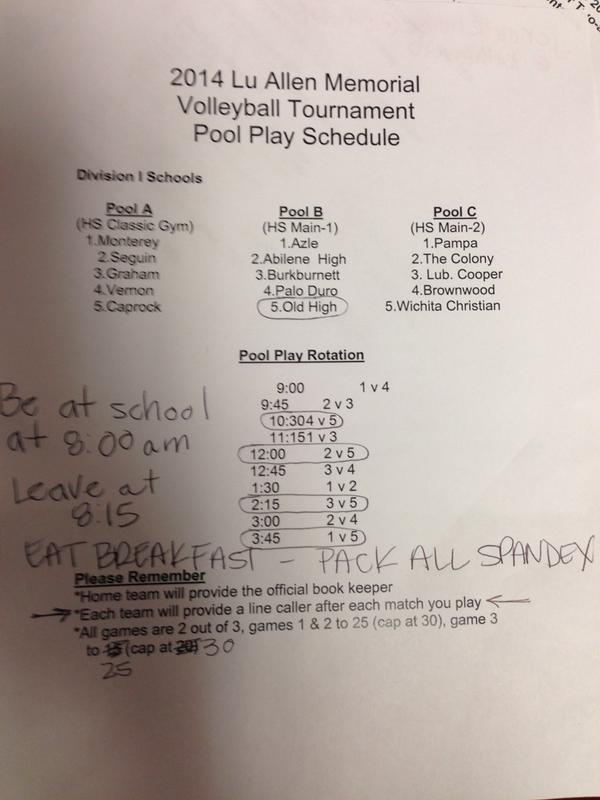 2014 Lu Allen Memorial
Volleyball Tournament
Pool Play Schedule
Division I Schools
Pool A
(HS Classic Gym)
1.Monterey
2.Seguin
3.Graham
4.Vernon
5.Caprock
Pool B
(HS Main-1)
1.Azle
2.Abilene High
3.Burkburnett
4.Palo Duro
5.Old High
Pool C
(HS Main-2)
1.Pampa
2.The Colony
3. Lub. Cooper
4.Brownwood
5.Wichita Christian
Pool Play Rotation
9:00 1 v 4
9:45 2 v 3
10:304 v 5
11:151 v 3
12:00 2 v 5
12:45 3 v 4
1:30 1 v 2
2:15 3 v 5
3:00 2 v 4
3:45 1 v 5
Be at school
at 8:00 am
Leave at
8:15
EAT BREAKFAST - PACK ALL SPANDEX
Please Remember
*Home team will provide the official book keeper
*Each team will provide a line caller after each match you play
*All games are 2 out of 3, games 1 & 2 to 25 (cap at 30), game 3
to 15 (cap at 20) 30
25